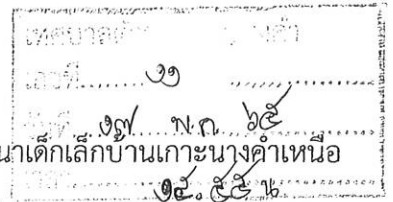 เทศบาลตำ
เลขที่ ๑๑
วันที่ ๑๗ พ.ค. ๖๕
นาเด็กเล็กบ้านเกาะนางคำเหนือ
๑๔.๕๕ น